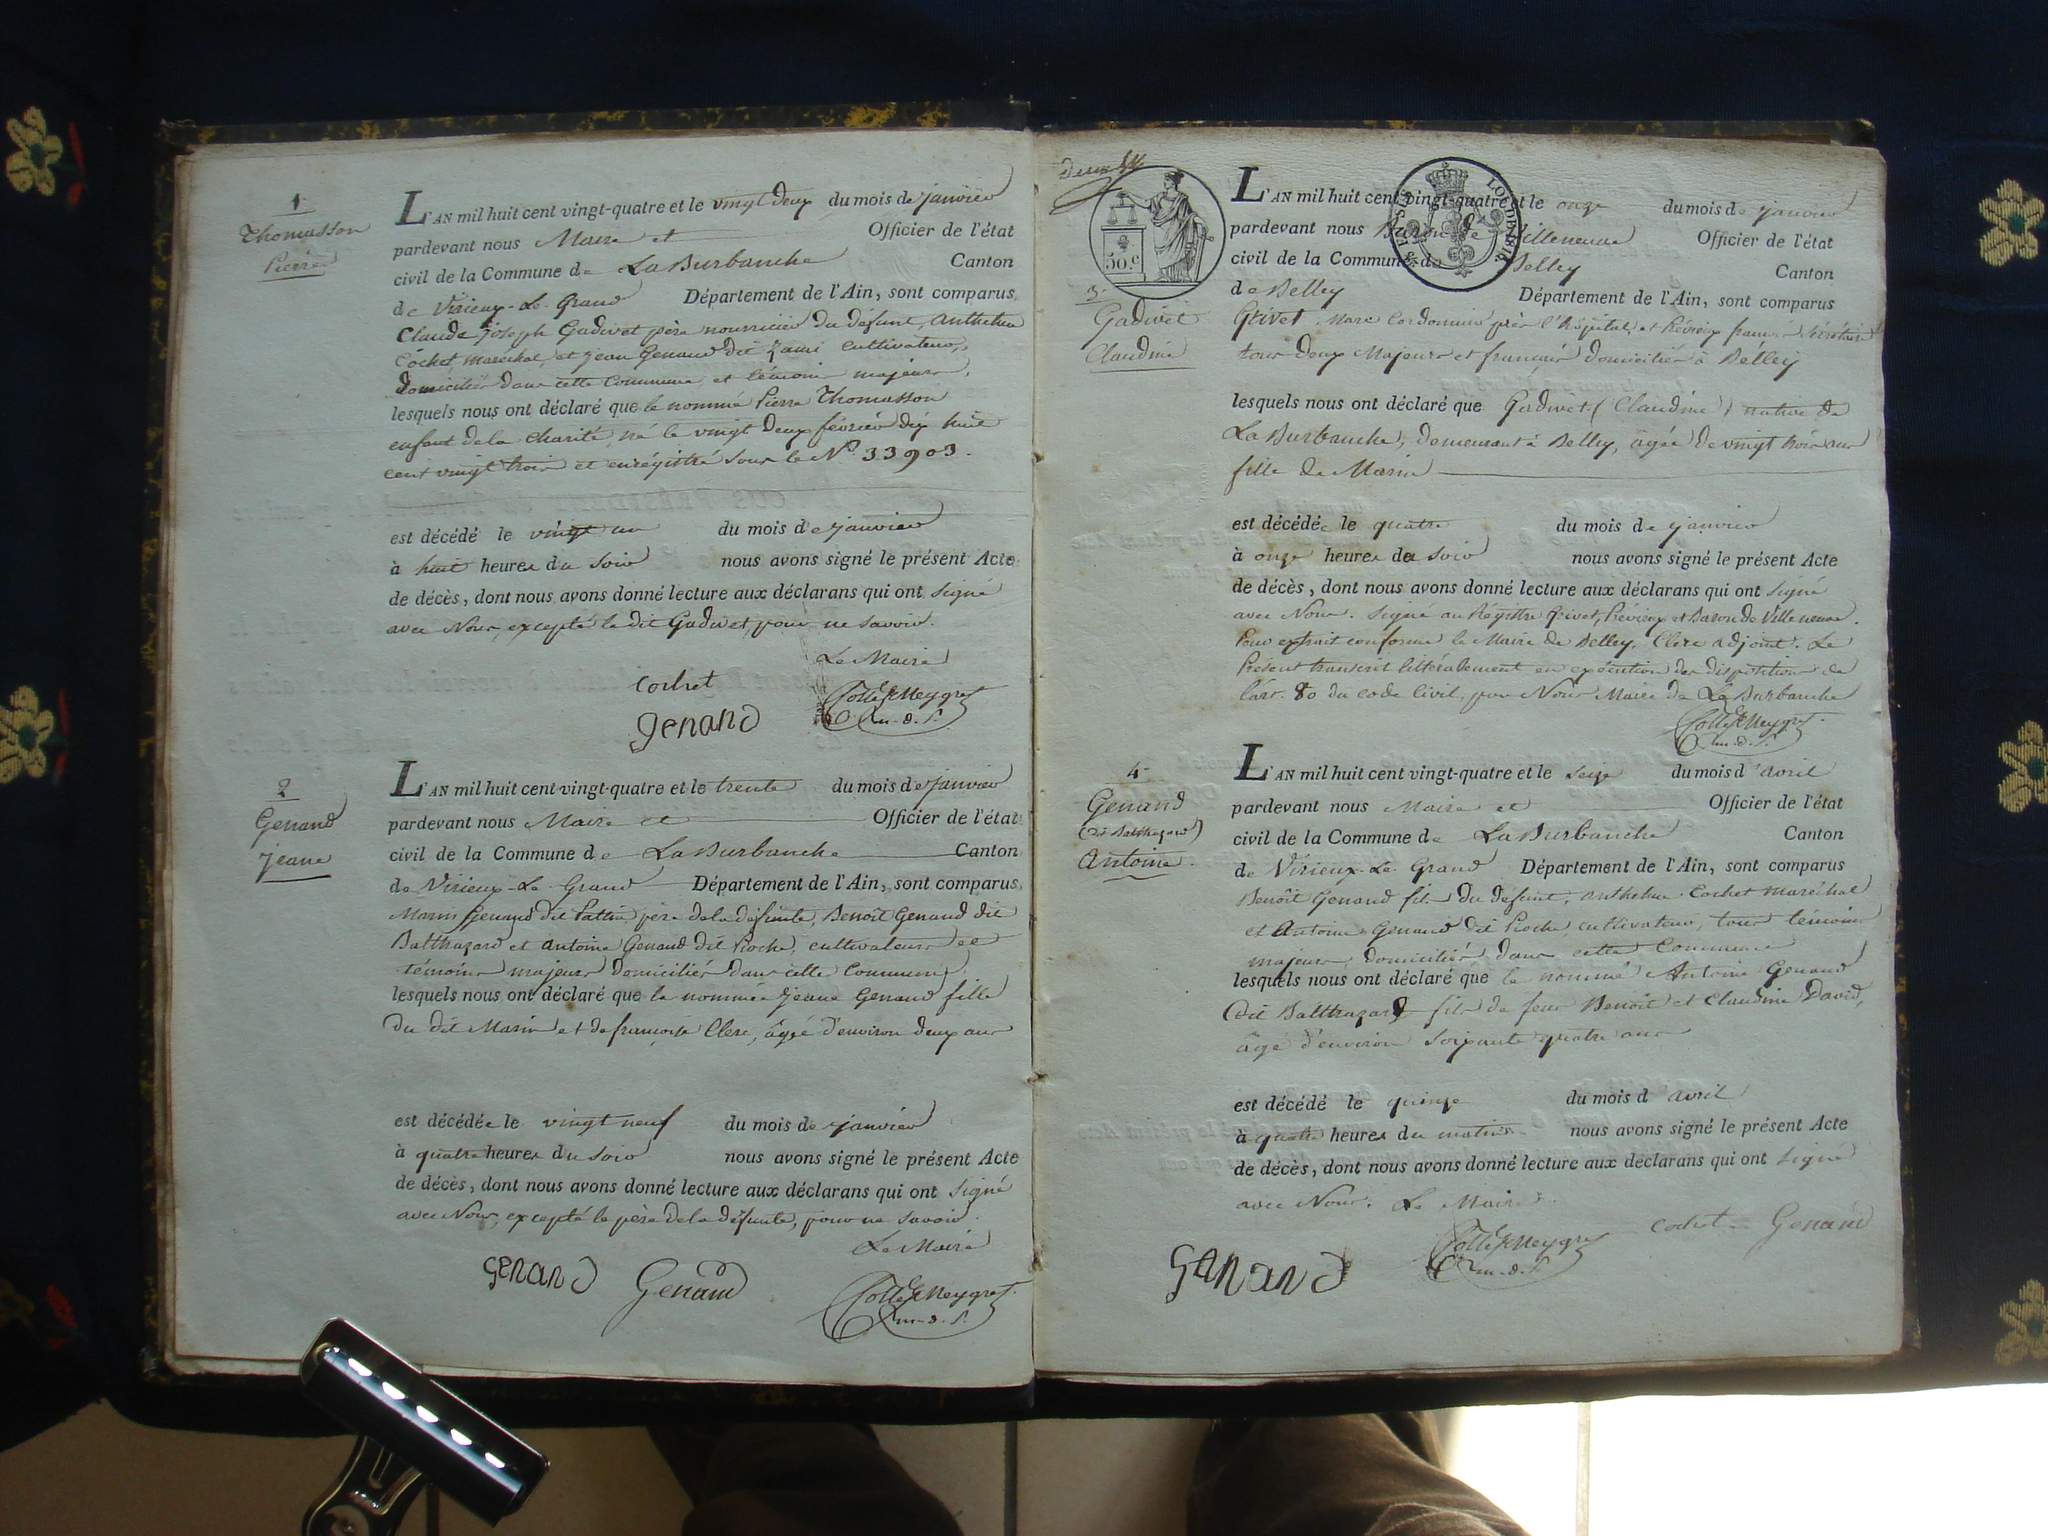 1
Thomasson
Pierre
L'AN mil huit cent vingt-quatre et le vingt deux du mois de janvier
pardevant nous Maire et Officier de l'état
civil de la Commune de La Burbanche Canton
de Virieux-Le-Grand Département de l'Ain, sont comparus
Claude joseph Gadivet père nourricier du défunt, Anthelme
Cochet, maréchal, et jean Genand dit jami cultivateur,
domiciliés dans cette Commune, et témoins majeurs.
lesquels nous ont déclaré que le nommé Pierre Thomasson
enfant de la charité, né le vingt deux février dix huit
cent vingt trois et enrégistré sous le N° 33903.
est décédé le vingt un du mois de janvier
à huit heures du soir nous avons signé le présent Acte
de décès, dont nous avons donné lecture aux déclarans qui ont signé
avec Nous, excepté le dit Gadivet, pour ne savoir.
Le Maire
cochet
genand
2
Genand
jeane
L'AN mil huit cent vingt-quatre et le trente du mois de janvier
pardevant nous Maire et Officier de l'état
civil de la Commune de La Burbanche Canton
de Virieux-Le-Grand Département de l'Ain, sont comparus
Marin Genand dit Pattin père de la défunte, Benoît Genand dit
Balthazard et antoine Genand dit Pioche, cultivateurs et
témoins majeurs domiciliés dans cette Commune
lesquels nous ont déclaré que la nommée jeane Genand fille
du dit Marin et de françoise Clerc, âgée d'environ deux ans
est décédée le vingt neuf du mois de janvier
à quatre heures du soir nous avons signé le présent Acte
de décès, dont nous avons donné lecture aux déclarans qui ont signé
avec Nous, excepté le père de la défunte, pour ne savoir.
Le Maire
genand Genand
50.c
LOI DE 1816
3
Gadivet
Claudine
L'AN mil huit cent vingt-quatre et le onze du mois de janvier
pardevant nous Baron de Villeneuve Officier de l'état
civil de la Commune de Belley Canton
de Belley Département de l'Ain, sont comparus
Grivet Marc Cordonnier près l'hôpital, et Prévieux françois Sécrétaire
tous deux Majeurs et français domiciliés à Belley
lesquels nous ont déclaré que Gadivet (Claudine) native de
La Burbanche, demeurant à Belley, âgée de vingt trois ans
fille de Marin
est décédée le quatre du mois de janvier
à onze heures du soir nous avons signé le présent Acte
de décès, dont nous avons donné lecture aux déclarans qui ont signé
avec Nous. Signé au Régistre Grivet, Prévieux et Baron de Villeneuve.
Pour extrait conforme le Maire de Belley, Clerc adjoint. Le
Présent transcrit littéralement en exécution des dispositions de
l'art. 80 du code Civil, par Nous Maire de La Burbanche
4
Genand
(dit Balthazard)
Antoine.
L'AN mil huit cent vingt-quatre et le seize du mois d'avril
pardevant nous Maire et Officier de l'état
civil de la Commune de La Burbanche Canton
de Virieux-Le-Grand Département de l'Ain, sont comparus
Benoît Genand fils du défunt, Anthelme Cochet maréchal
et Antoine Genand dit Pioche cultivateur, tous témoins
majeurs domiciliés dans cette Commune
lesquels nous ont déclaré que le nommé Antoine Genand
(dit Balthazard) fils de feus Benoît et Claudine David,
âgé d'environ soixante quatre ans
est décédé le quinze du mois d'avril
à quatre heures du matin nous avons signé le présent Acte
de décès, dont nous avons donné lecture aux déclarans qui ont signé
avec Nous. Le Maire.
cochet Genand
genand